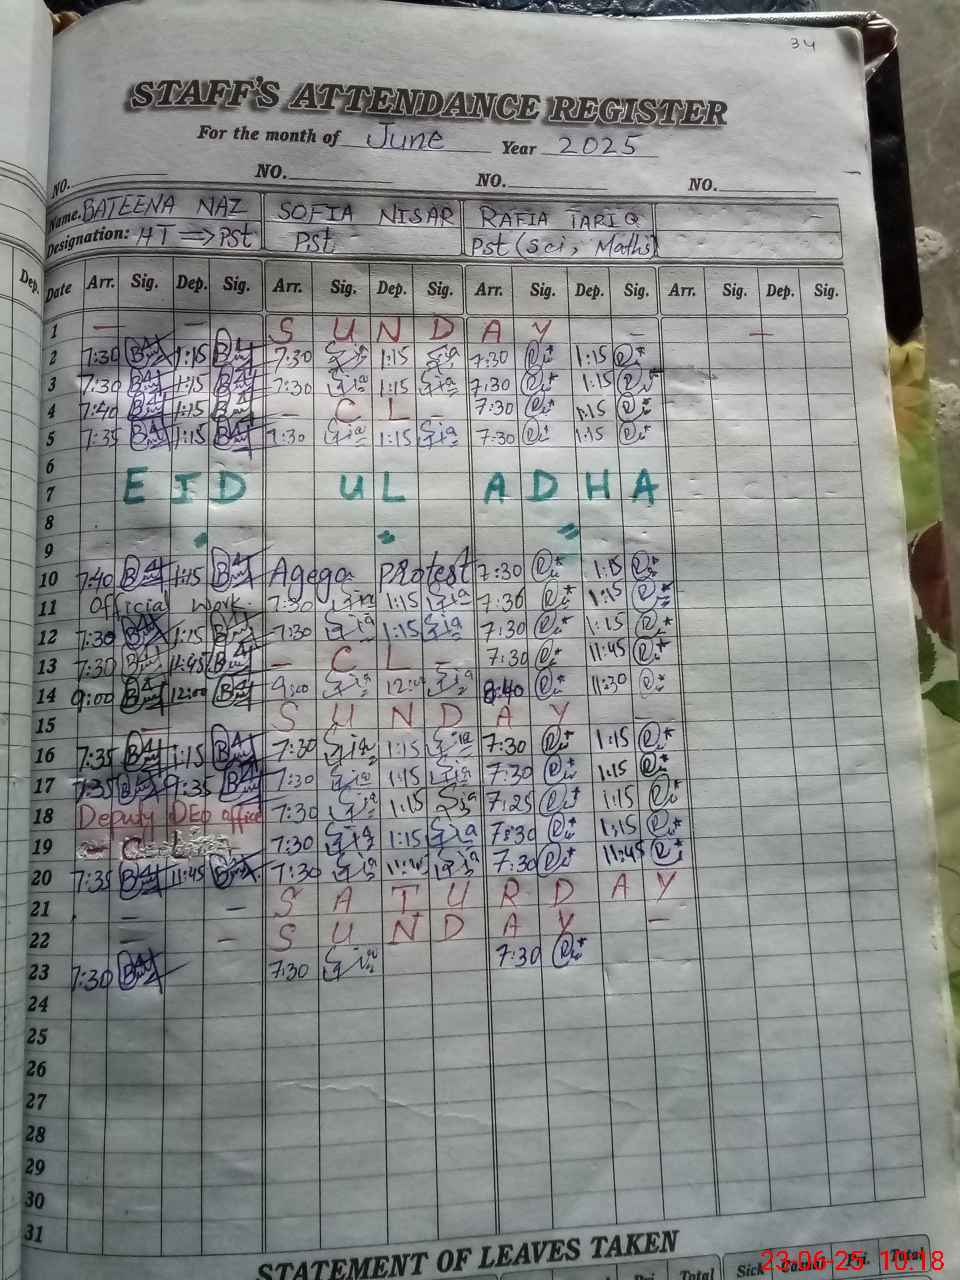 34
STAFF'S ATTENDANCE REGISTER
For the month of June Year 2025
NO. NO. NO. NO.
Name. BATEENA NAZ SOFIA NISAR RAFIA TARIQ
Designation: HT => Pst Pst Pst (Sci, Maths)
Dep.
Date Arr. Sig. Dep. Sig. Arr. Sig. Dep. Sig. Arr. Sig. Dep. Sig. Arr. Sig. Dep. Sig.
1 — — S U N D A Y — —
2 7:30 1:15 7:30 1:15 7:30 1:15
3 7:30 1:15 7:30 1:15 7:30 1:15
4 7:40 1:15 — C L — 7:30 1:15
5 7:35 1:15 7:30 1:15 7:30 1:15
6
7 E I D U L A D H A
8
9
10 7:40 1:15 Agega Protest 7:30 1:15
11 Official work 7:30 1:15 7:30 1:15
12 7:30 1:15 7:30 1:15 7:30 1:15
13 7:30 11:45 — C L — 7:30 11:45
14 9:00 12:00 9:00 8:40 11:30
15 — S U N D A Y —
16 7:35 1:15 7:30 1:15 7:30 1:15
17 7:35 9:35 7:30 1:15 7:30 1:15
18 Deputy DEO office 7:30 1:15 7:25 1:15
19 — C L 7:30 1:15 7:30 1:15
20 7:35 11:45 7:30 7:30 11:45
21 — — S A T U R D A Y
22 — — S U N D A Y —
23 7:30 7:30 7:30
24
25
26
27
28
29
30
31
STATEMENT OF LEAVES TAKEN
Pri. Total Sick Casual Pri. Total
23-06-25 10:18